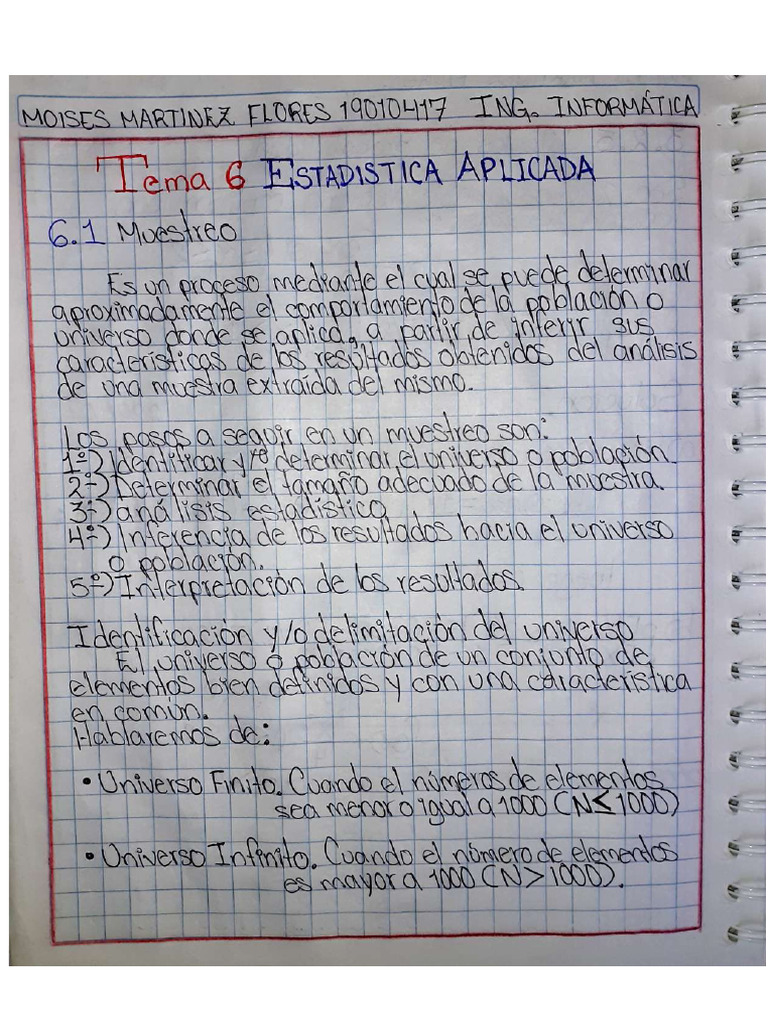 MOISES MARTINEZ FLORES 19010417 ING. INFORMÁTICA
Tema 6 ESTADISTICA APLICADA
6.1 Muestreo
Es un proceso mediante el cual se puede determinar
aproximadamente el comportamiento de la población o
universo donde se aplica, a partir de inferir sus
características de los resultados obtenidos del análisis
de una muestra extraída del mismo.
Los pasos a seguir en un muestreo son:
1º) Identificar y determinar el universo o población.
2º) Determinar el tamaño adecuado de la muestra.
3º) análisis estadístico
4º) Inferencia de los resultados hacia el universo
o población.
5º) Interpretación de los resultados.
Identificación y/o delimitación del universo
El universo o población de un conjunto de
elementos bien definidos y con una característica
en común.
Hablaremos de:
• Universo Finito. Cuando el números de elementos
sea menor o igual a 1000 (N≤1000)
• Universo Infinito. Cuando el número de elementos
es mayor a 1000 (N>1000).